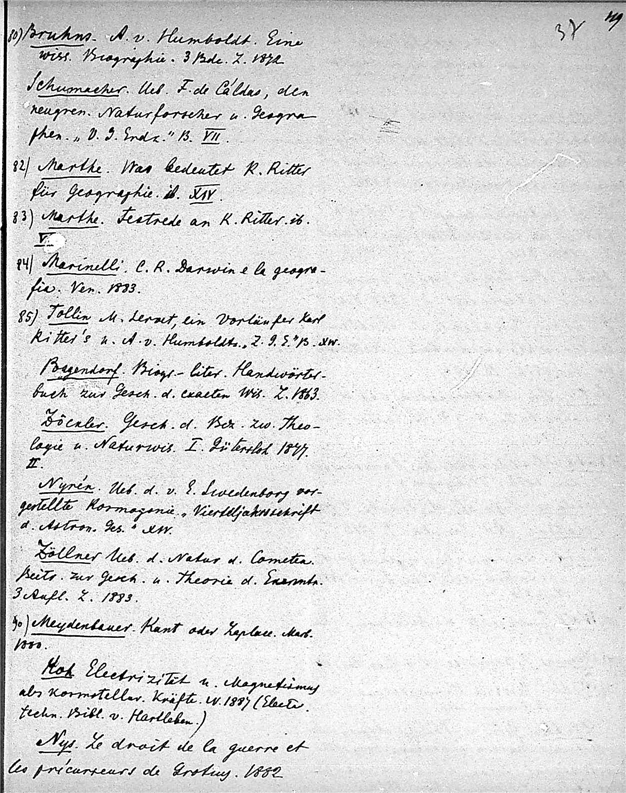 37
49
80) Bruhns. A. v. Humboldt. Eine
wiss. Biographie. 3 Bde. L. 1872
Schumacher. Ueb. F. de Cáldas, den
neugren. Naturforscher u. Geogra
phen. „V. G. Erdk." B. VII.
82) Marthe. Was bedeutet K. Ritter
für Geographie. ib. XIV.
83) Marthe. Festrede an K. Ritter. ib.
V
84) Marinelli. C. R. Darwin e la geogra-
fia. Ven. 1883.
85) Tollin M. Servet, ein Vorläufer Karl
Ritter's u. A. v. Humboldts. „Z. G. E." B. XIV.
Poggendorf. Biogr-liter. Handwörter-
buch zur Gesch. d. exacten Wis. L. 1863.
Zöckler. Gesch. d. Bez. zw. Theo-
logie u. Naturwis. I. Gütersloh 1877.
II.
Nyrén. Ueb. d. v. E. Swedenborg vor-
gestellte Kosmogonie. „Vierteljahrsschrift
d. Astron. Ges." XIV.
Zöllner Ueb. d. Natur d. Cometen.
Beitr. zur Gesch. u. Theorie d. Erkenntn.
3 Aufl. L. 1883.
90) Meydenbauer. Kant oder Laplace. Marb.
1880.
Electrizität u. Magnetismus
als kosmotellur. Kräfte. W. 1887 (Electr.
techn. Bibl. v. Hartleben.)
Nys. Le droit de la guerre et
les précurseurs de Grotius. 1882